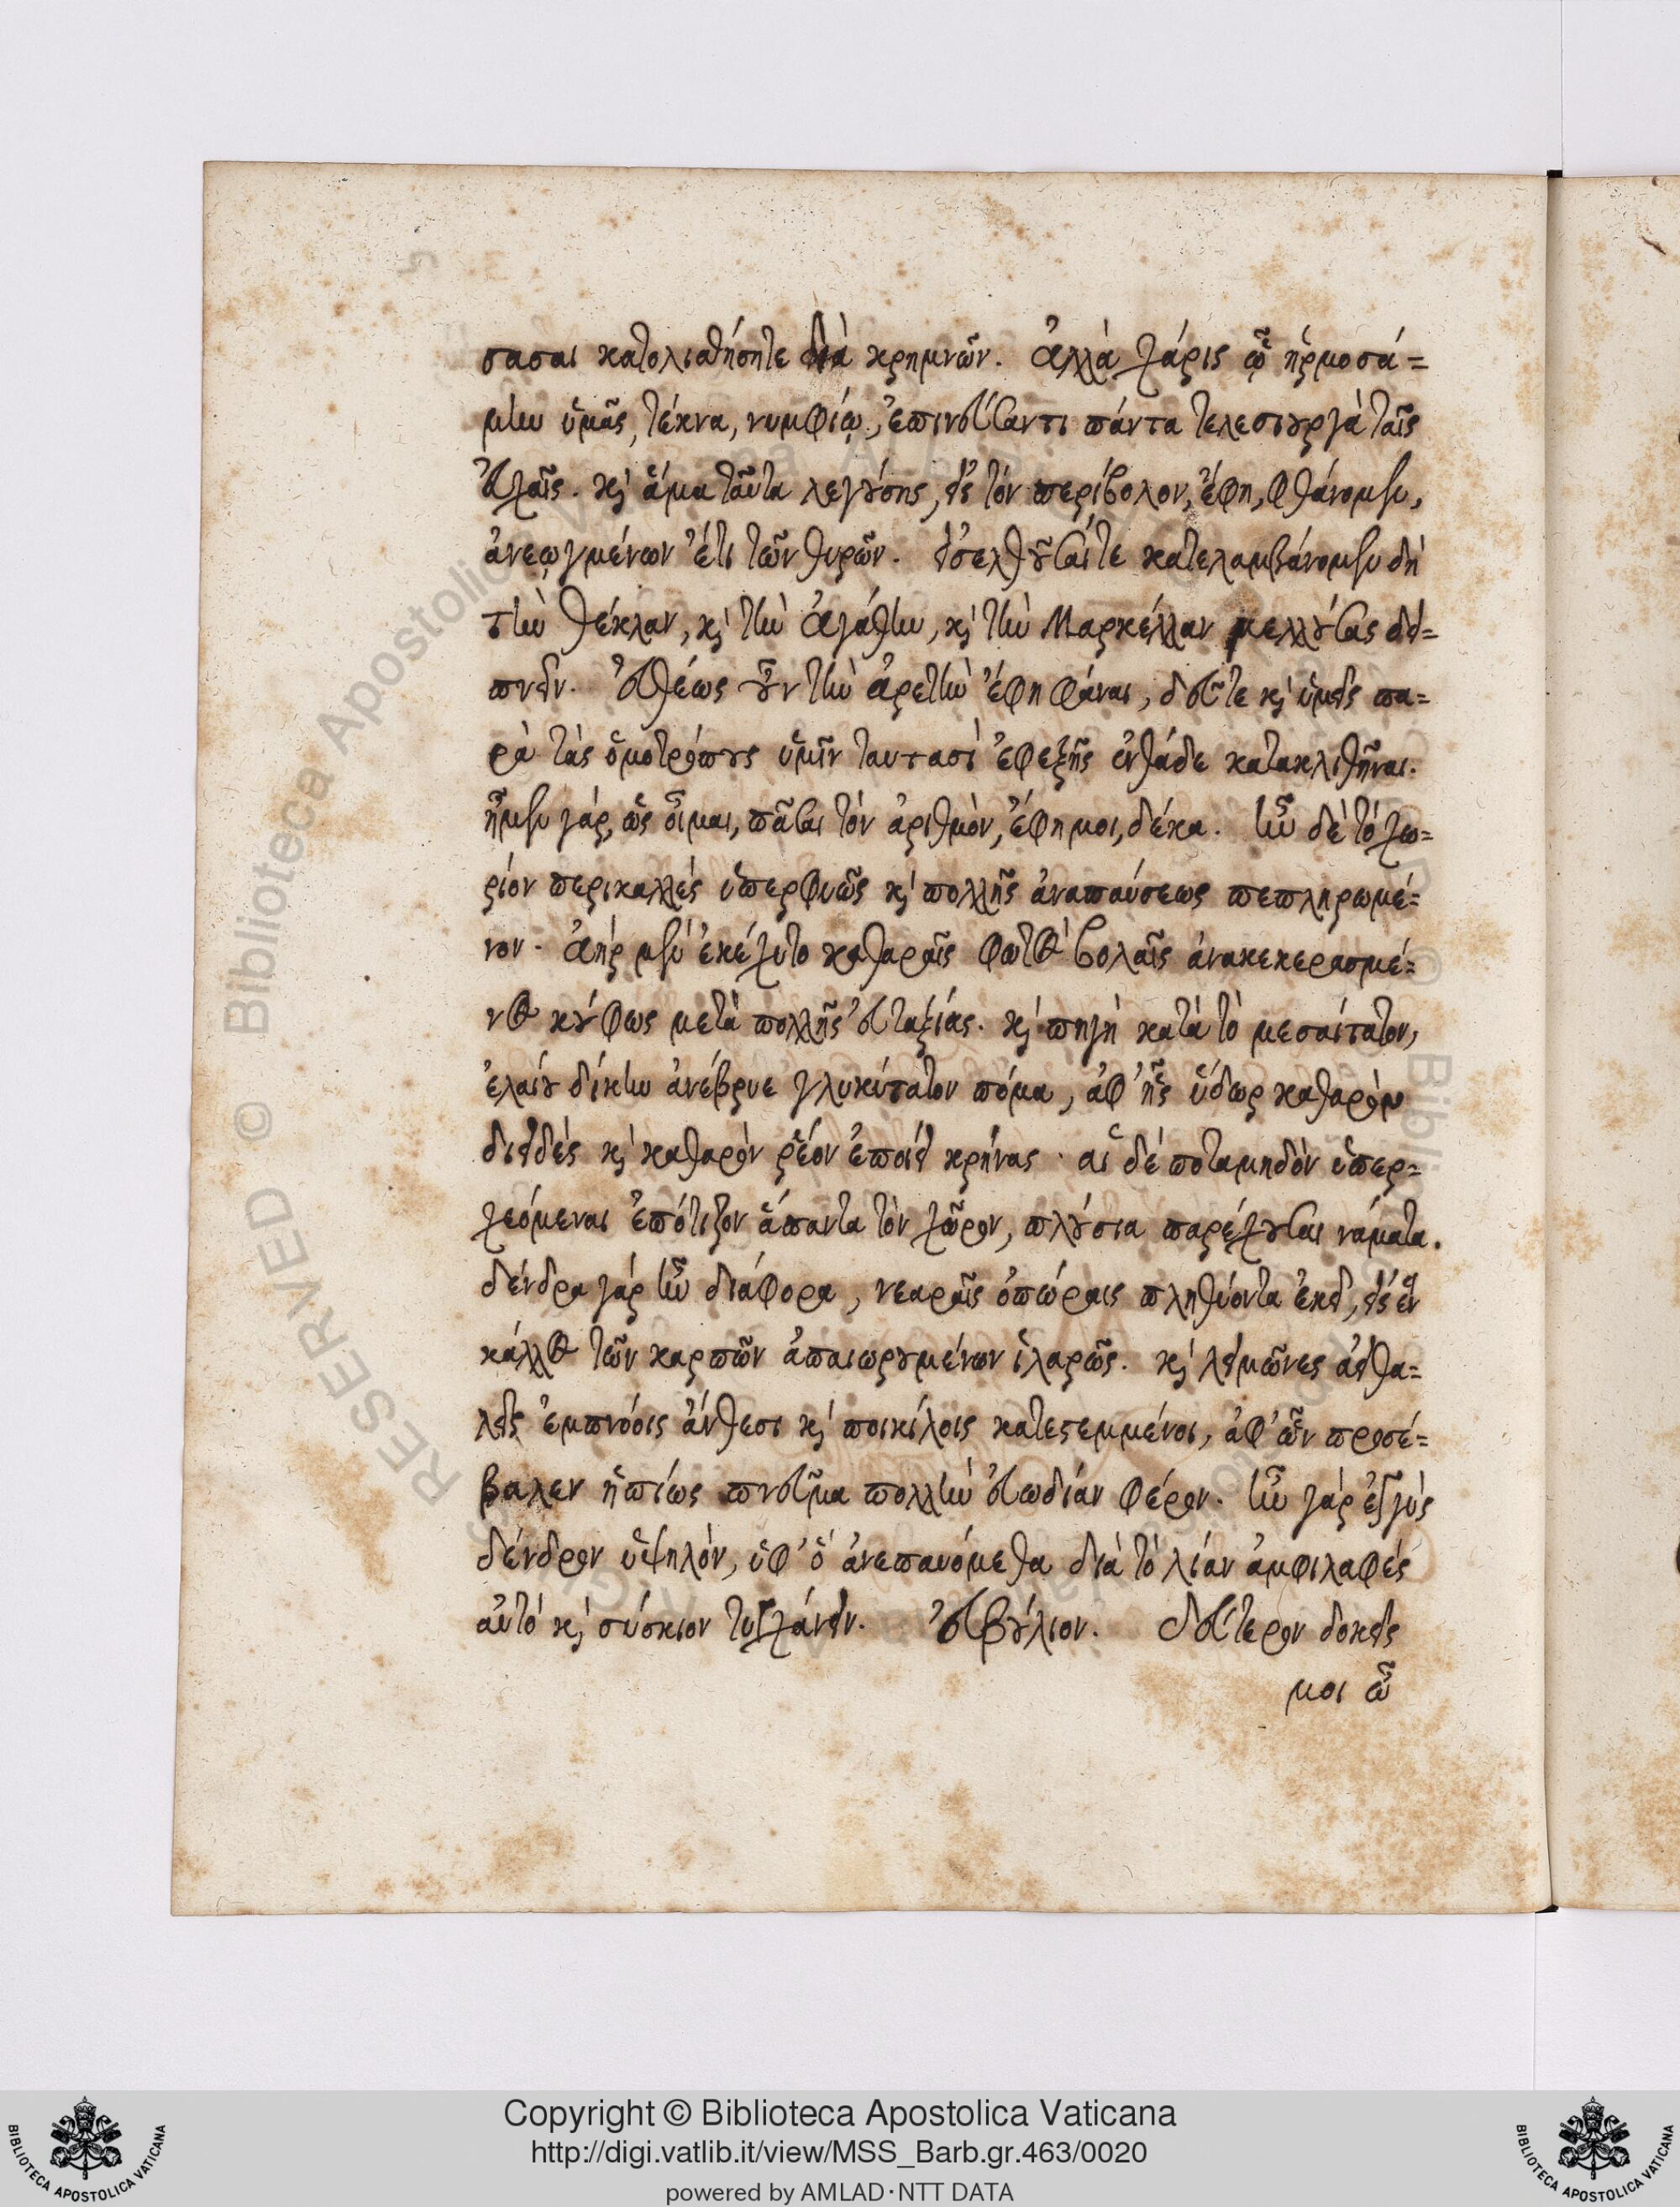 σασαι κατολισθήσητε διὰ κρημνῶν. Ἀλλὰ χάρις ᾧ ἡρμοσά=
μην ὑμᾶς, τέκνα, νυμφίῳ, ἐπινεύσαντι πάντα τελεσιουργὰ ταῖς
εὐχαῖς. καὶ ἅμα ταῦτα λεγούσης, εἰς τὸν περίβολον, ἔφη, φθάνομεν,
ἀνεῳγμένων ἔτι τῶν θυρῶν. εἰσελθοῦσαί τε κατελαμβάνομεν δὴ
τὴν Θέκλαν, καὶ τὴν Ἀγάθην, καὶ τὴν Μαρκέλλαν μελλούσας δει=
πνεῖν. εὐθέως οὖν τὴν ἀρετὴν ἔφη φάναι, δεῦτε καὶ ὑμεῖς πα=
ρὰ τὰς ὁμοτρόπους ὑμῖν ταυτασὶ ἐφεξῆς ἐνθάδε κατακλιθῆναι.
ἦμεν γάρ, ὡς οἶμαι, πᾶσαι τὸν ἀριθμὸν, ἔφη μοι, δέκα. ἦν δὲ τὸ χω=
ρίον περικαλλὲς ὑπερφυῶς καὶ πολλῆς ἀναπαύσεως πεπληρωμέ=
νον. Ἀὴρ μὲν ἐκέχυτο καθαραῖς φωτὸς βολαῖς ἀνακεκερασμέ=
νος κούφως μετὰ πολλῆς εὐταξίας. καὶ πηγὴ κατὰ τὸ μεσαίτατον,
ἐλαίου δίκην ἀνέβρυε γλυκύτατον πόμα, ἀφ' ἧς ὕδωρ καθαρὸν
διειδὲς καὶ καθαρὸν ῥέον ἐποίει κρήνας. αἱ δὲ ποταμηδὸν ὑπερ=
χεόμεναι ἐπότιζον ἅπαντα τὸν χῶρον, πλούσια παρέχουσαι νάματα.
δένδρα γὰρ ἦν διάφορα, νεαραῖς ὀπώραις πληθύοντα ἐκεῖ, εἰς ἓν
κάλλος τῶν καρπῶν ἀπαιωρουμένων ἱλαρῶς. καὶ λειμῶνες ἀειθα=
λεῖς ἐμπνόοις ἄνθεσι καὶ ποικίλοις κατεστεμμένοι, ἀφ' ὧν προσέ=
βαλεν ἠπίως πνεῦμα πολλὴν εὐωδίαν φέρον. ἦν γὰρ ἐγγὺς
δένδρον ὑψηλὸν, ὑφ' ὃ ἀνεπαυόμεθα διὰ τὸ λίαν ἀμφιλαφὲς
αὐτὸ καὶ σύσκιον τυγχάνειν. εὐβούλιον. δεύτερον δοκεῖς
μοι ὦ
Copyright © Biblioteca Apostolica Vaticana
http://digi.vatlib.it/view/MSS_Barb.gr.463/0020
powered by AMLAD·NTT DATA
BIBLIOTECA APOSTOLICA VATICANA
BIBLIOTECA APOSTOLICA VATICANA